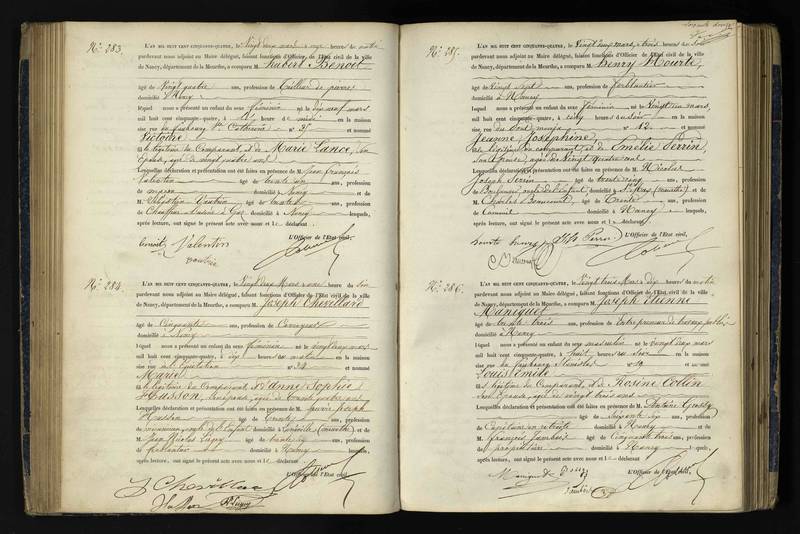 N.º 283.
L'AN MIL HUIT CENT CINQUANTE-QUATRE, le Vingt deux mars à onze heures du matin
pardevant nous adjoint au Maire délégué, faisant fonctions d'Officier de l'Etat civil de la ville
de Nancy, département de la Meurthe, a comparu M. Hubert Benoit
âgé de Vingt quatre ans, profession de tailleur de pierres
domicilié à Nancy
lequel nous a présenté un enfant du sexe féminin né le dix neuf mars
mil huit cent cinquante-quatre, à heures de midi en la maison
sise rue du faubourg Ste Catherine n.º et nommé
Victoire
fille légitime du Comparant, et de Marie Lance, son
Epouse, agée de vingt quatre ans
Lesquelles déclaration et présentation ont été faites en présence de M. Jean François
Valentin âgé de trente ans, profession
de maçon domicilié à Nancy et de
M. Sébastien Vautrin âgé de trente ans, profession
de Chauffeur à Gaz domicilié à Nancy lesquels,
après lecture, ont signé le présent acte avec nous et le déclarant
L'Officier de l'Etat civil,
benoit Valentin
Vautrin
N.º 284.
L'AN MIL HUIT CENT CINQUANTE-QUATRE, le Vingt deux Mars à une heure du soir
pardevant nous adjoint au Maire délégué, faisant fonctions d'Officier de l'Etat civil de la ville
de Nancy, département de la Meurthe, a comparu M. Joseph Chevillard
âgé de Cinquante ans, profession de
domicilié à Nancy
lequel nous a présenté un enfant du sexe féminin né le vingt deux mars
mil huit cent cinquante-quatre, à dix heures du matin en la maison
sise rue de l'Equitation n.º et nommé
Marie
fille légitime du Comparant, et d'Anne Sophie
Husson, son épouse, agée de trente quatre ans
Lesquelles déclaration et présentation ont été faites en présence de M. Joseph
Husson âgé de trente ans, profession
de oncle de l'Enfant domicilié à Lunéville (meurthe) et de
M. Jean Nicolas Ligey âgé de trente ans, profession
de ferblantier domicilié à Nancy lesquels,
après lecture, ont signé le présent acte avec nous et le déclarant
L'Officier de l'Etat civil,
J Chevillard
Husson Ligey
N.º 285.
L'AN MIL HUIT CENT CINQUANTE-QUATRE, le Vingt deux mars, à trois heures du soir
pardevant nous adjoint au Maire délégué, faisant fonctions d'Officier de l'Etat civil de la ville
de Nancy, département de la Meurthe, a comparu M. Henry Hourte
âgé de Vingt sept ans, profession de ferblantier
domicilié à Nancy
lequel nous a présenté un enfant du sexe féminin né le Vingt un mars,
mil huit cent cinquante-quatre, à cinq heures du soir en la maison
sise rue du Pont mouja n.º 12 et nommé
Jeanne Joséphine,
fille légitime du comparant, et de Emélie Perrin,
son Epouse, agée de Vingt quatre ans
Lesquelles déclaration et présentation ont été faites en présence de M. Nicolas
Joseph Perrin âgé de trente cinq ans, profession
de Boulanger, oncle de l'enfant, domicilié à (meurthe) et de
M. Charles âgé de Trente ans, profession
de Commis domicilié à Nancy lesquels,
après lecture, ont signé le présent acte avec nous et le déclarant
L'Officier de l'Etat civil,
hourte henry Perrin
N.º 286.
L'AN MIL HUIT CENT CINQUANTE-QUATRE, le Vingt trois Mars à dix heures du matin
pardevant nous adjoint au Maire délégué, faisant fonctions d'Officier de l'Etat civil de la ville
de Nancy, département de la Meurthe, a comparu M. Joseph Etienne
Maniguet
âgé de trente trois ans, profession de Entrepreneur de travaux publics
domicilié à Nancy
lequel nous a présenté un enfant du sexe masculin né le vingt deux mars
mil huit cent cinquante-quatre, à huit heures du soir en la maison
sise rue du faubourg Stanislas n.º 19 et nommé
Louis Emile
fils légitime du Comparant, et de Rosine Collin
son Epouse, agée de vingt trois ans
Lesquelles déclaration et présentation ont été faites en présence de M. Antoine
âgé de Soixante ans, profession
de Capitaine en retraite domicilié à Nancy et de
M. François Jambois âgé de Cinquante trois ans, profession
de propriétaire domicilié à Nancy lesquels,
après lecture, ont signé le présent acte avec nous et le déclarant
L'Officier de l'Etat civil,
Maniguet
Jambois